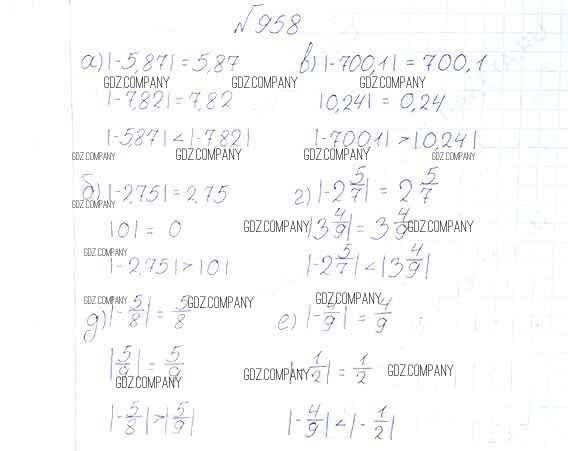 №958
а) |-5,87| = 5,87
в) |-700,1| = 700,1
GDZ.COMPANY
GDZ.COMPANY
|-7,82| = 7,82
|0,24| = 0,24
|-5,87| < |-7,82|
|-700,1| > |0,24|
GDZ.COMPANY
GDZ.COMPANY
GDZ.COMPANY
GDZ.COMPANY
б) |-2,75| = 2,75
г) |-2 5/7| = 2 5/7
GDZ.COMPANY
|0| = 0
GDZ.COMPANY
|3 4/9| = 3 4/9
GDZ.COMPANY
GDZ.COMPANY
|-2,75| > |0|
|-2 5/7| < |3 4/9|
GDZ.COMPANY
GDZ.COMPANY
GDZ.COMPANY
д) |-5/8| = 5/8
е) |-4/9| = 4/9
|5/9| = 5/9
|-1/2| = 1/2
GDZ.COMPANY
GDZ.COMPANY
GDZ.COMPANY
|-5/8| > |5/9|
|-4/9| < |-1/2|